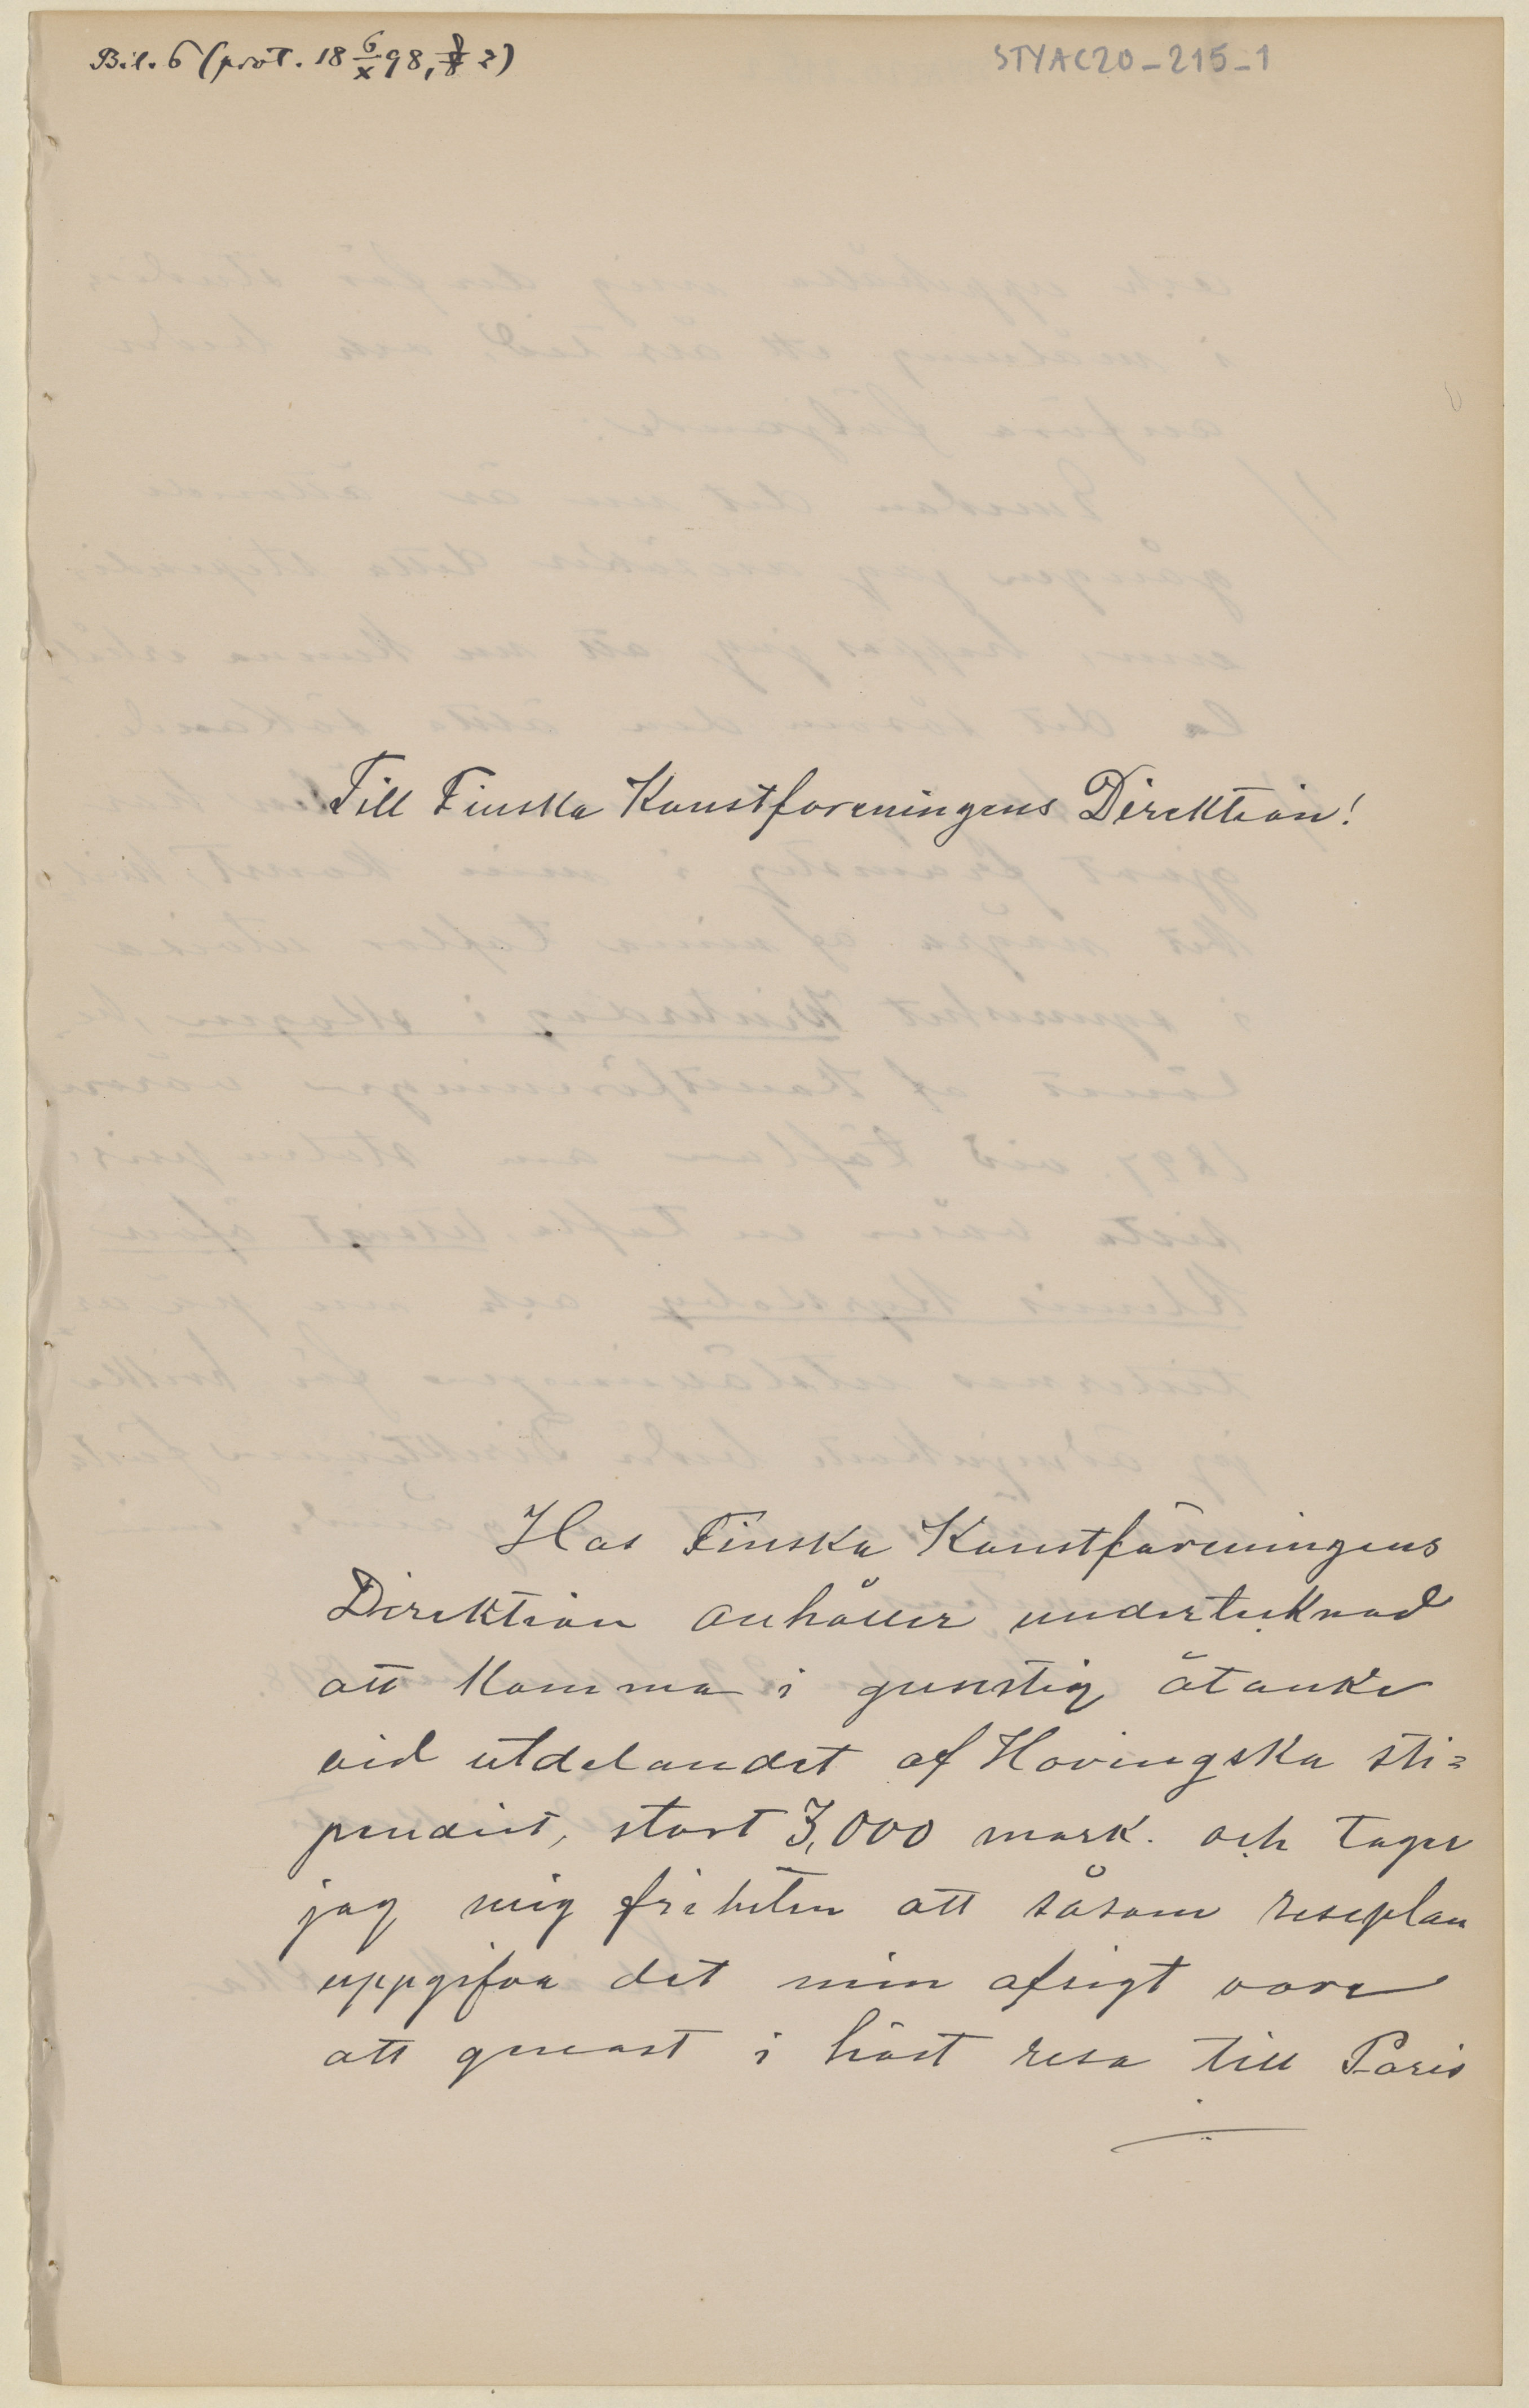 Bil. 6 (prot. 18 6/X 98, § 2)
STYAC20-215-1
Till Finska Konstforeningens Direktion!
Hos Finska Konstföreningens
Direktion anhåller undertecknad
att komma i gunstig åtanke
vid utdelandet af Hovingska sti=
pendiet, stort 3,000 mark. och tager
jag mig friheten att såsom reseplan
uppgifva det min afsigt vore
att genast i höst resa till Paris